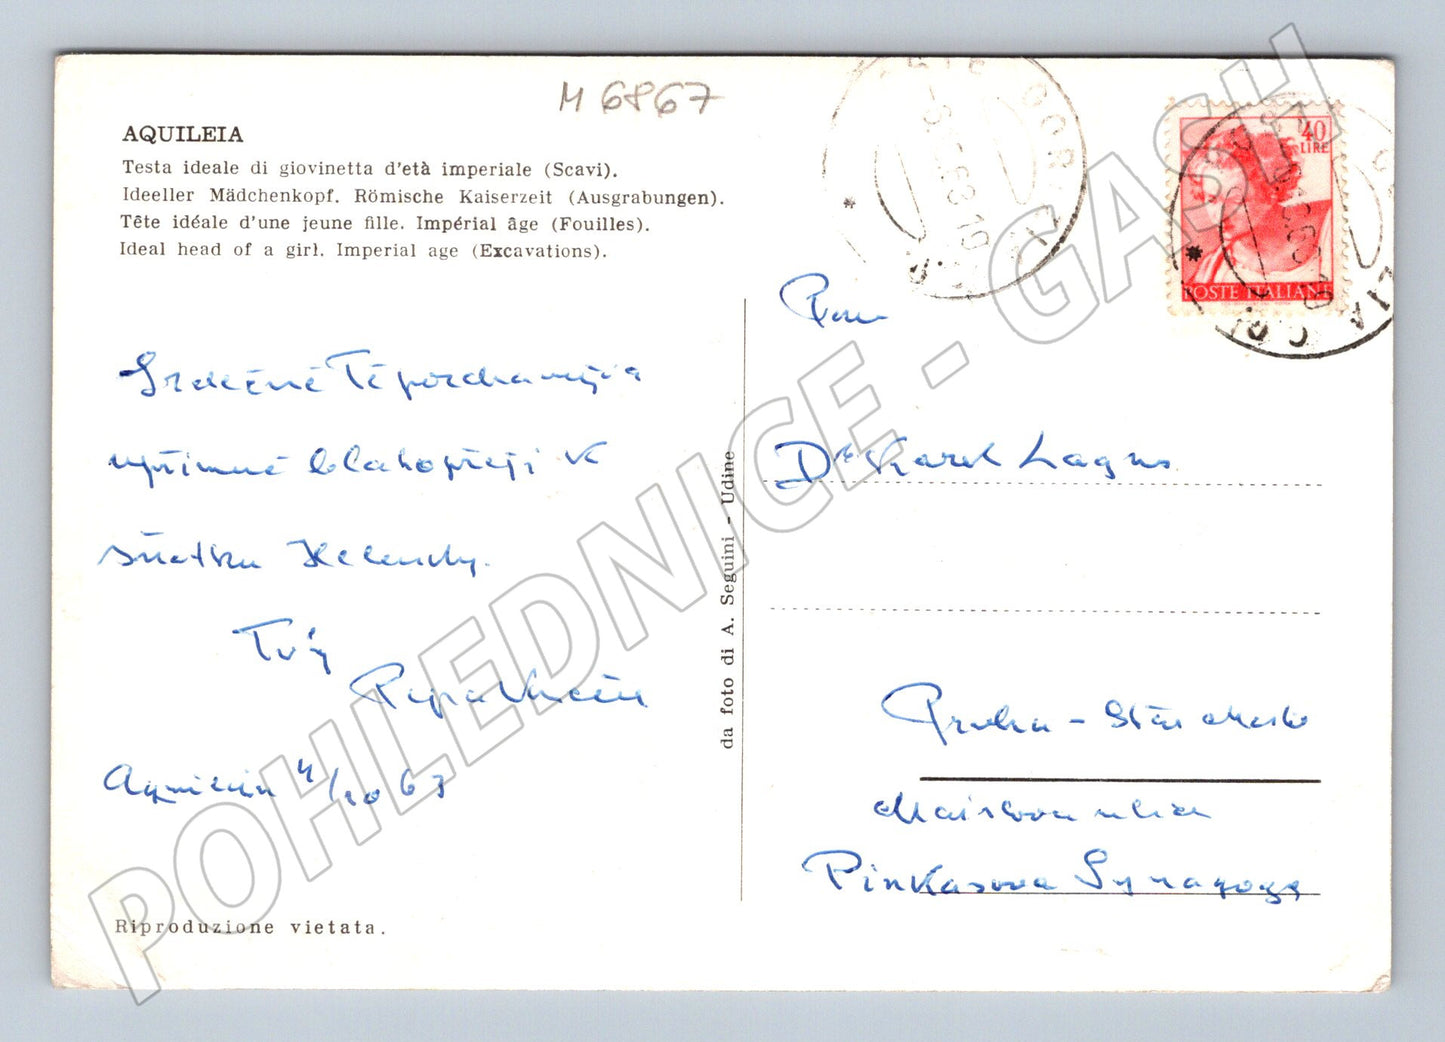 M 6867
AQUILEIA
Testa ideale di giovinetta d'età imperiale (Scavi).
Ideeller Mädchenkopf. Römische Kaiserzeit (Ausgrabungen).
Tête idéale d'une jeune fille. Impérial âge (Fouilles).
Ideal head of a girl. Imperial age (Excavations).
40
LIRE
POSTE ITALIANE
Srdečné Tě pozdravuji a
upřímně blahopřeji k
sňatku Helenky.
Tvůj
Pepa
Aquileia 4/10 63
Riproduzione vietata.
da foto di A. Seguini - Udine
Pan
Dr Karel Lagus
Praha - Staré Město
Maislova ulice
Pinkasova Synagoga
POHLEDNICE - GASH